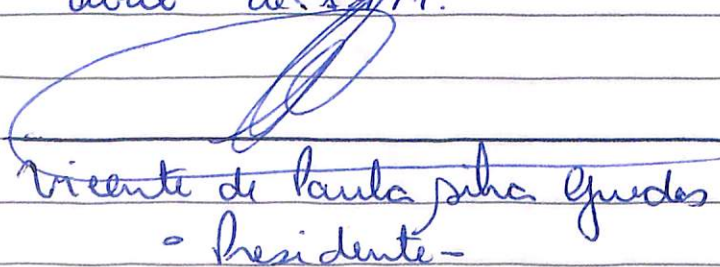 Vicente de Paula Silva Guedes
- Presidente -